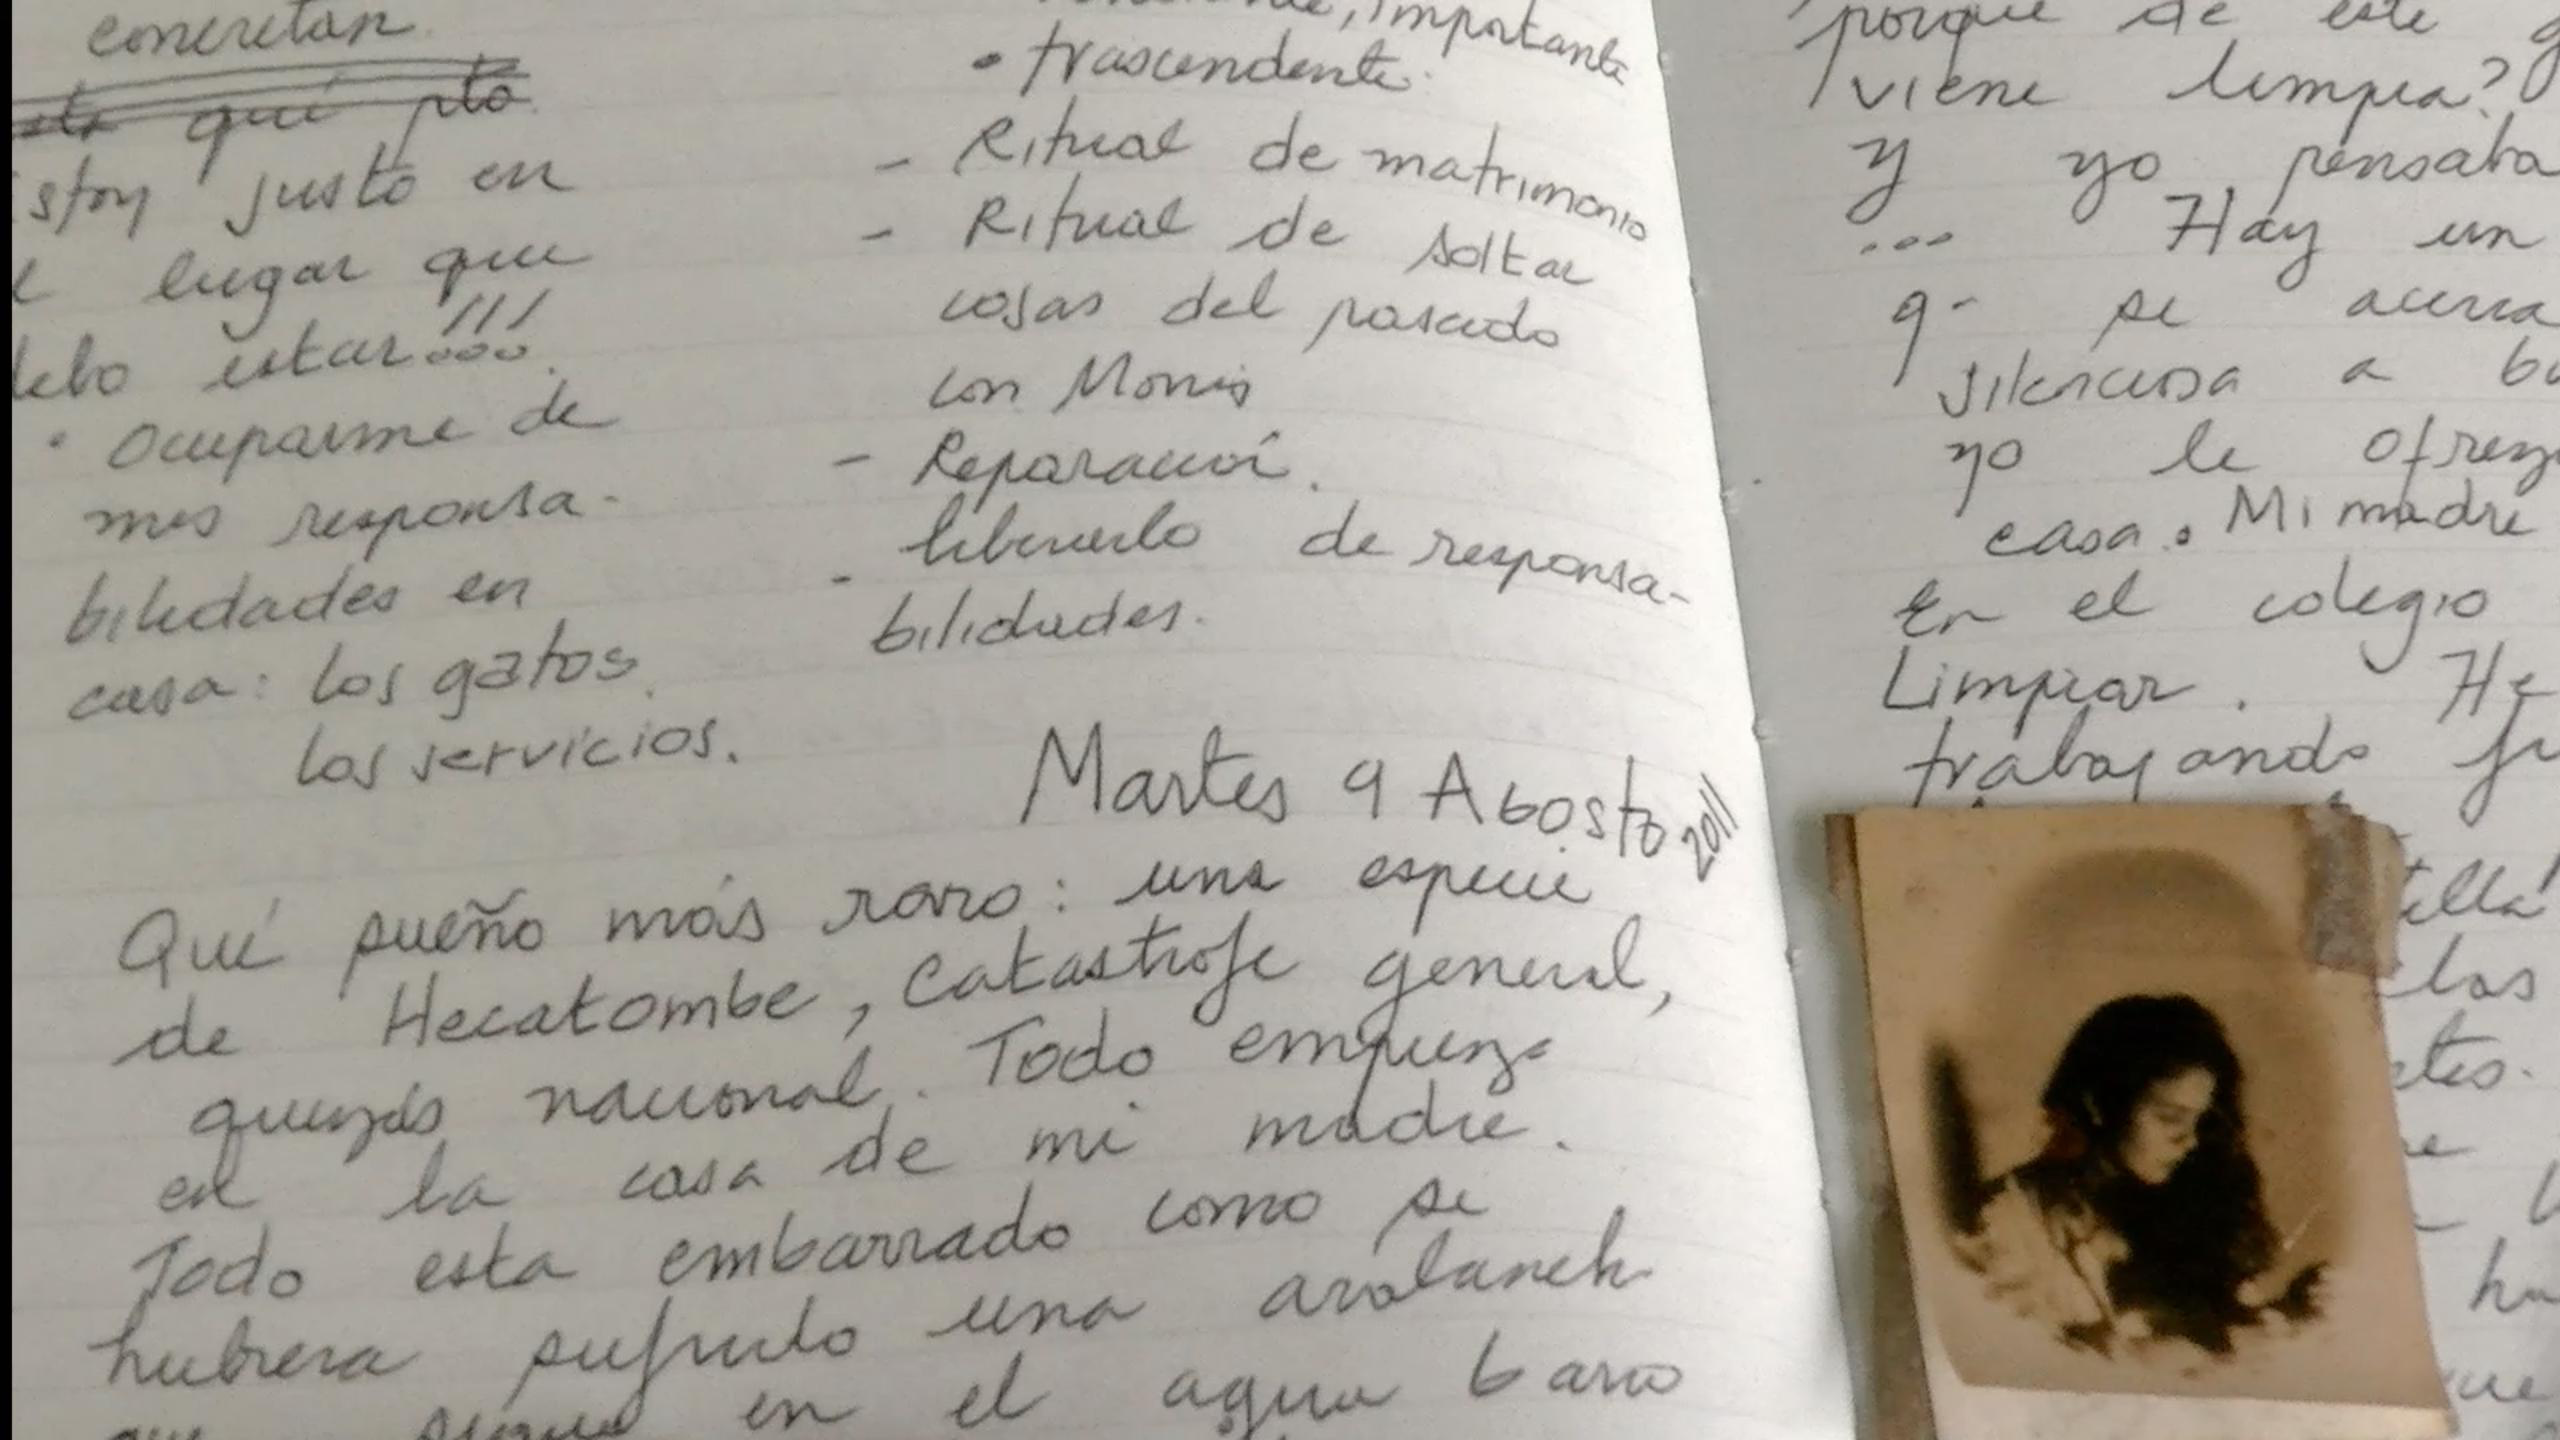 concretar
qué pto
Estoy justo en
el lugar que
debo estar!!!
• Ocuparme de
mis responsa-
bilidades en
casa: los gatos.
los servicios.
, importante
• trascendente.
- Ritual de matrimonio
- Ritual de soltar
cosas del pasado
con Monis
- Reparación.
- liberarlo de responsa-
bilidades.
Martes 9 Agosto 2011
Qué sueño más raro: una especie
de Hecatombe, Catastrofe general,
quizás nacional. Todo empieza
en la casa de mi madre.
Todo esta embarrado como se
hubiera sufrido una avalanch
que sigue en el agua barro
porque de este g
viene limpia?
y yo pensaba
... Hay un
q- se acerca
silenciosa a bu
yo le ofrez
casa. Mi madre
En el colegio
Limpiar. He
trabajando fu
tilla
las
etes.
hu
que